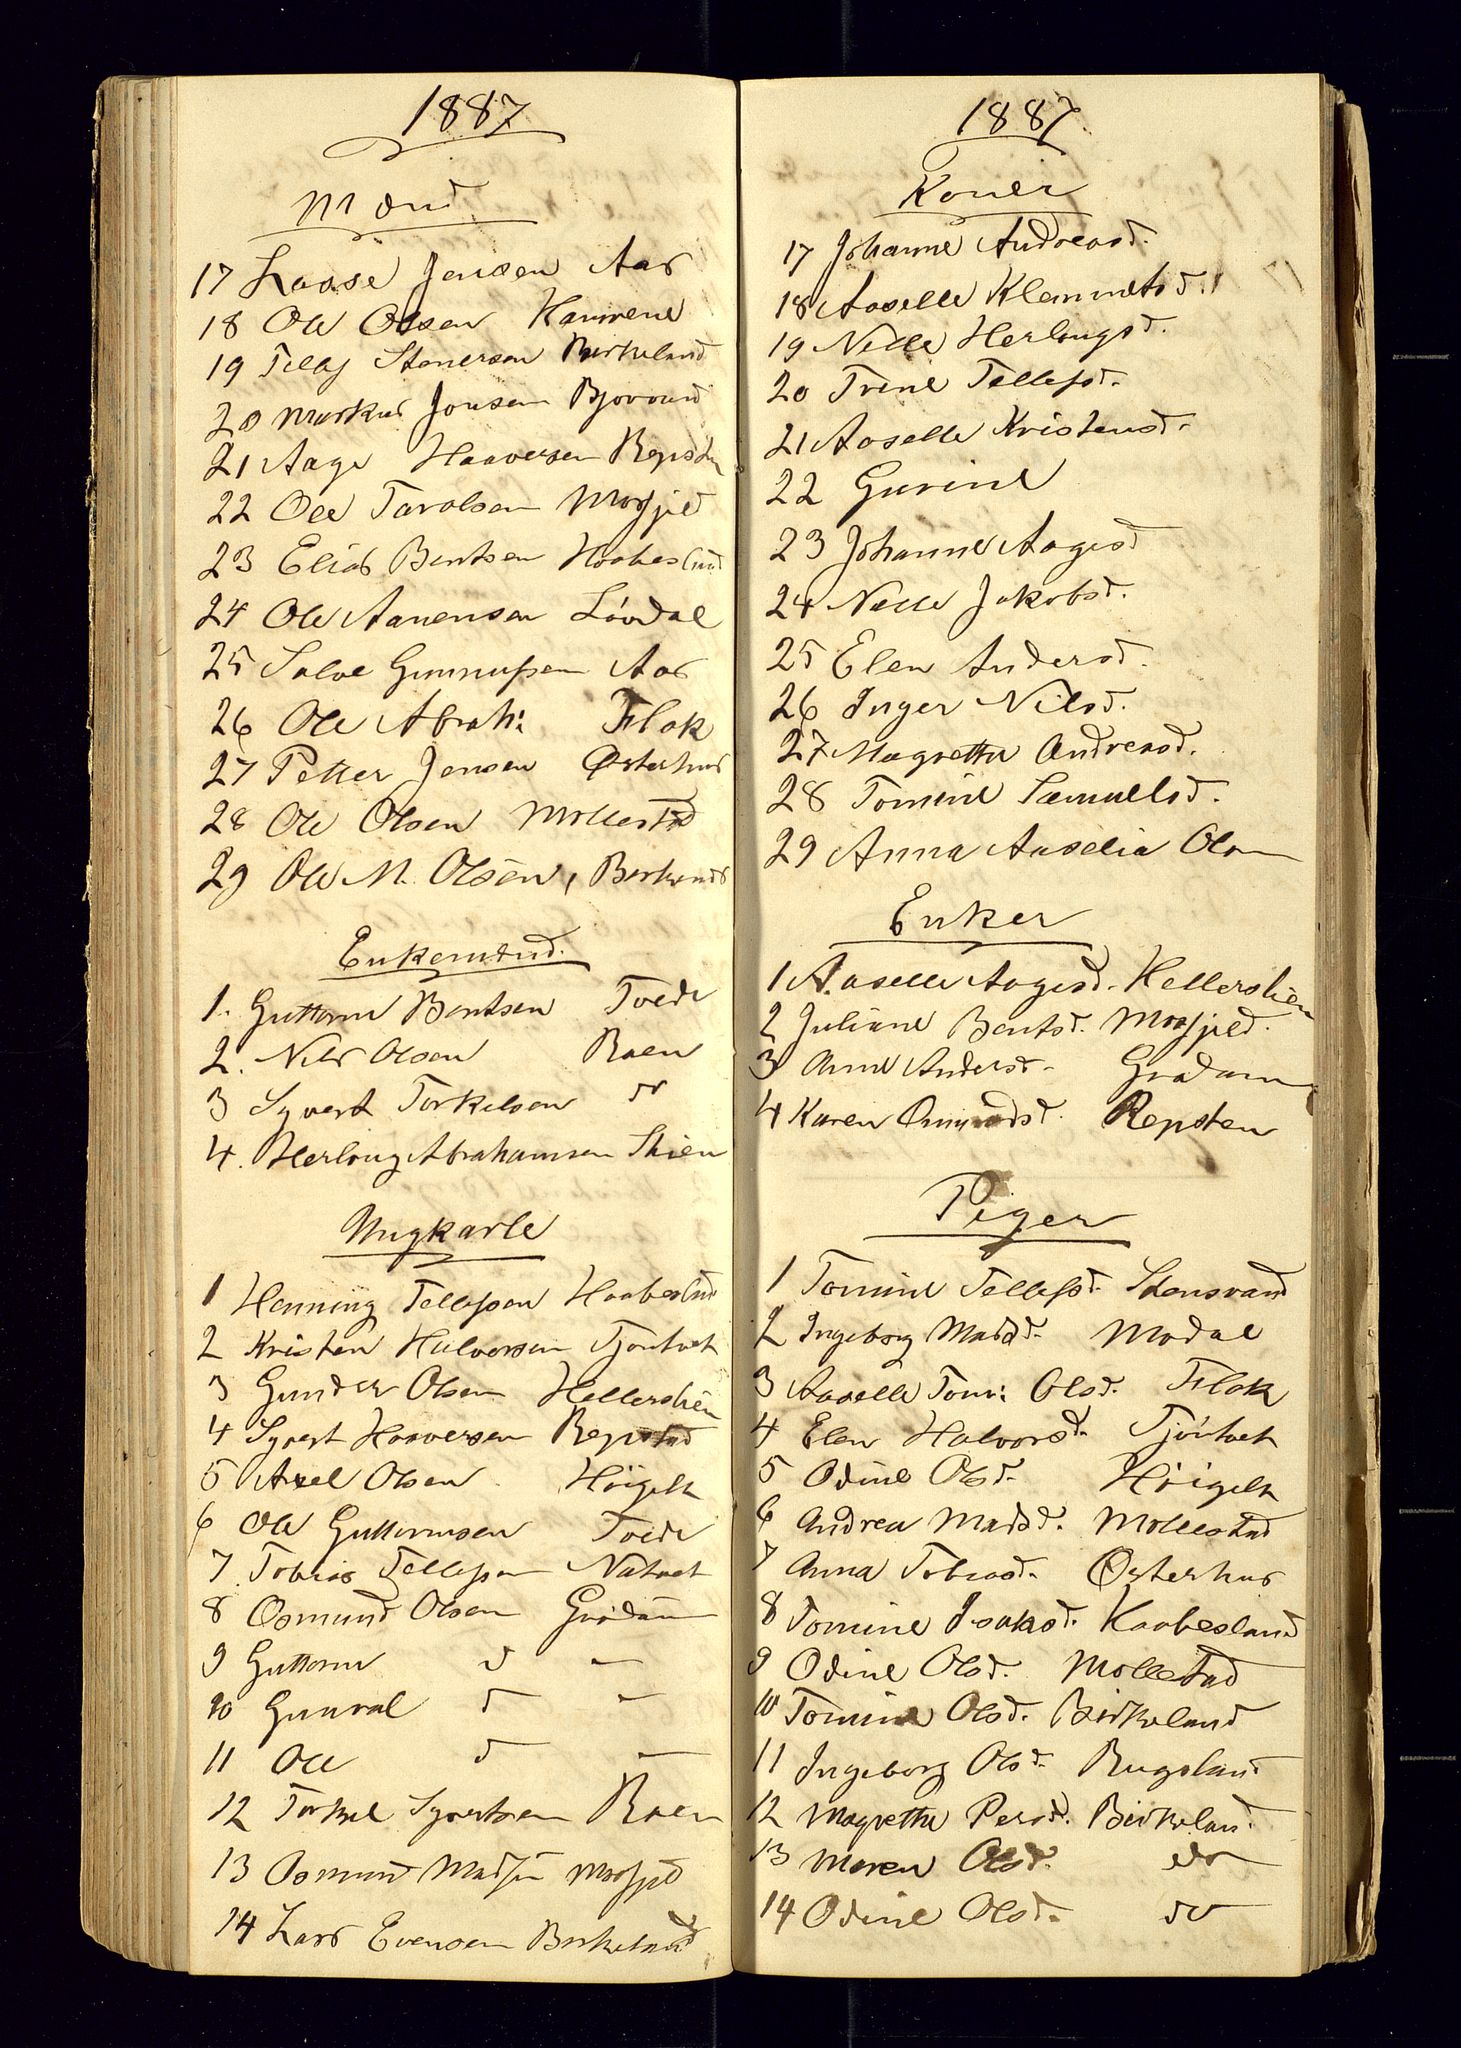 1887
Mænd
17 Lasse Jensen Aas
18 Ole Olsen Hamrene
19 Tellef Stenersen Birkeland
20 Markus Jonsen Bjorvand
21 Aage Haaversen Repsta
22 Ole Tarolsen Mosfjeld
23 Elias Bentsen Haabeslnd
24 Ole Aanensen Lövdal
25 Salve Gunnufsen Aas
26 Ole Abrah: Flak
27 Petter Jensen Østerhus
28 Ole Olsen Mollestad
29 Ole M. Olsen, Berkenes
Enkemænd.
1. Guttorm Bentsen Tvede
2. Nils Olsen Raen
3 Syvert Torkelsen do
4. Herloug Abrahamsen Skien
Ungkarle
1 Henning Tellefsen Haabeslnd
2 Kristen Halvorsen Tjöntvet
3 Gunder Olsen Hellerslien
4 Syvert Haaversen Repstad
5 Axel Olsen Höigelt
6 Ole Guttormsen Tvede
7 Tobias Tellefsen Natvet
8 Osmund Olsen Gusdam
9 Guttorm d —
10 Gunval d —
11 Ole d —
12 Torkel Syvertsen Raen
13 Osmund Madsen Mosfjeld
14 Lars Evensen Birkeland
1887
Koner
17 Johanne Andreasd.
18 Aaselle Klemmetsd.
19 Nelle Herlougsd.
20 Trine Tellefsd.
21 Aaselle Kristensd.
22 Gurine
23 Johanne Aagesd
24 Nelle Jakobsd.
25 Elen Andersd.
26 Inger Nilsd.
27 Magrethe Andreasd.
28 Tomine Samuelsd.
29 Anna Aaselia Olsn
Enker
1 Aaselle Aagesd. Hellerslien
2 Juliane Bentsd. Mosfjeld.
3 Anne Andersd. Grødum
4 Karen Omundsd. Repsten
Piger
1 Tomine Tellefsd. Stensvand
2 Ingeborg Madsd. Modal
3 Aaselle Tom: Olsd. Flak
4 Elen Halvorsd. Tjöntvet
5 Odine Olsd. Höigelt
6 Andrea Madsd. Mollestad
7 Anna Tobiasd. Østerhus
8 Tomine Isaksd. Haabesland
9 Odine Olsd. Mollestad
10 Tomine Olsd. Birkeland
11 Ingeborg Olsd. Rugsland
12 Magrethe Persd. Birkeland.
13 Maren Olsd. do
14 Odine Olsd. do